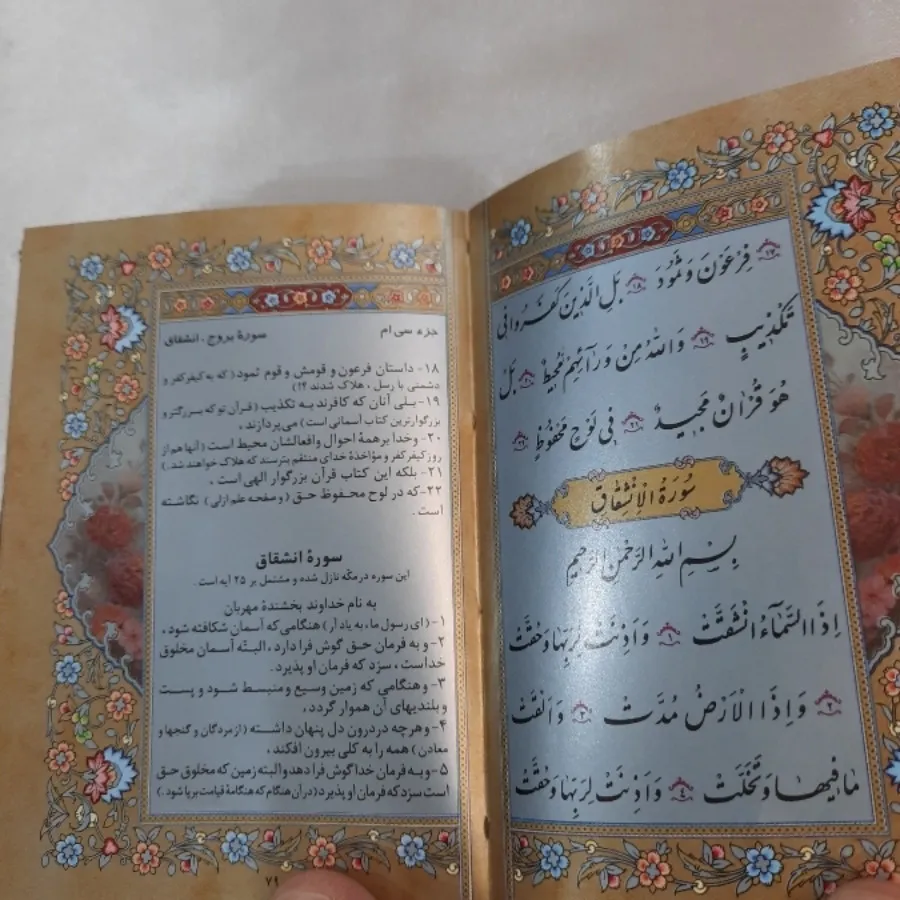 ۱۷ فِرْعَوْنَ وَثَمُودَ ۱۸ بَلِ الَّذِينَ كَفَرُوا فِي
تَكْذِيبٍ ۱۹ وَاللّٰهُ مِنْ وَرَآئِهِمْ مُحِيطٌ ۲۰ بَلْ
هُوَ قُرْاٰنٌ مَجِيدٌ ۲۱ فِي لَوْحٍ مَحْفُوظٍ ۲۲
سُورَةُ الْاِنْشِقَاقِ
بِسْمِ اللّٰهِ الرَّحْمٰنِ الرَّحِيمِ
اِذَا السَّمَآءُ انْشَقَّتْ ۱ وَاَذِنَتْ لِرَبِّهَا وَحُقَّتْ
۲ وَاِذَا الْاَرْضُ مُدَّتْ ۳ وَاَلْقَتْ
مَا فِيهَا وَتَخَلَّتْ ۴ وَاَذِنَتْ لِرَبِّهَا وَحُقَّتْ
جزء سی ام سورهٔ بروج، انشقاق
۱۸- داستان فرعون و قومش و قوم ثمود (که به کیفر کفر و
دشمنی با رسل، هلاک شدند ؟!)
۱۹- بلی آنان که کافرند به تکذیب (قرآن تو که بزرگتر و
بزرگوارترین کتاب آسمانی است) می‌پردازند،
۲۰- و خدا بر همهٔ احوال و افعالشان محیط است (آنها هم از
روز کیفر کفر و مؤاخذهٔ خدای منتقم بترسند که هلاک خواهند شد.)
۲۱- بلکه این کتاب قرآن بزرگوار الهی است،
۲۲- که در لوح محفوظ حق (و صفحه علم ازلی) نگاشته
است.
سورهٔ انشقاق
این سوره در مکّه نازل شده و مشتمل بر ۲۵ آیه است.
به نام خداوند بخشندهٔ مهربان
۱- (ای رسول ما، به یاد آر) هنگامی که آسمان شکافته شود،
۲- و به فرمان حق گوش فرا دارد، البتّه آسمان مخلوق
خداست، سزد که فرمان او پذیرد.
۳- و هنگامی که زمین وسیع و منبسط شود و پست
و بلندیهای آن هموار گردد،
۴- و هر چه در درون دل پنهان داشته (از مردگان و گنجها و
معادن) همه را به کلی بیرون افکند،
۵- و به فرمان خدا گوش فرا دهد و البته زمین که مخلوق حق
است سزد که فرمان او پذیرد (در آن هنگام که هنگامهٔ قیامت برپا شود.)
۷۹